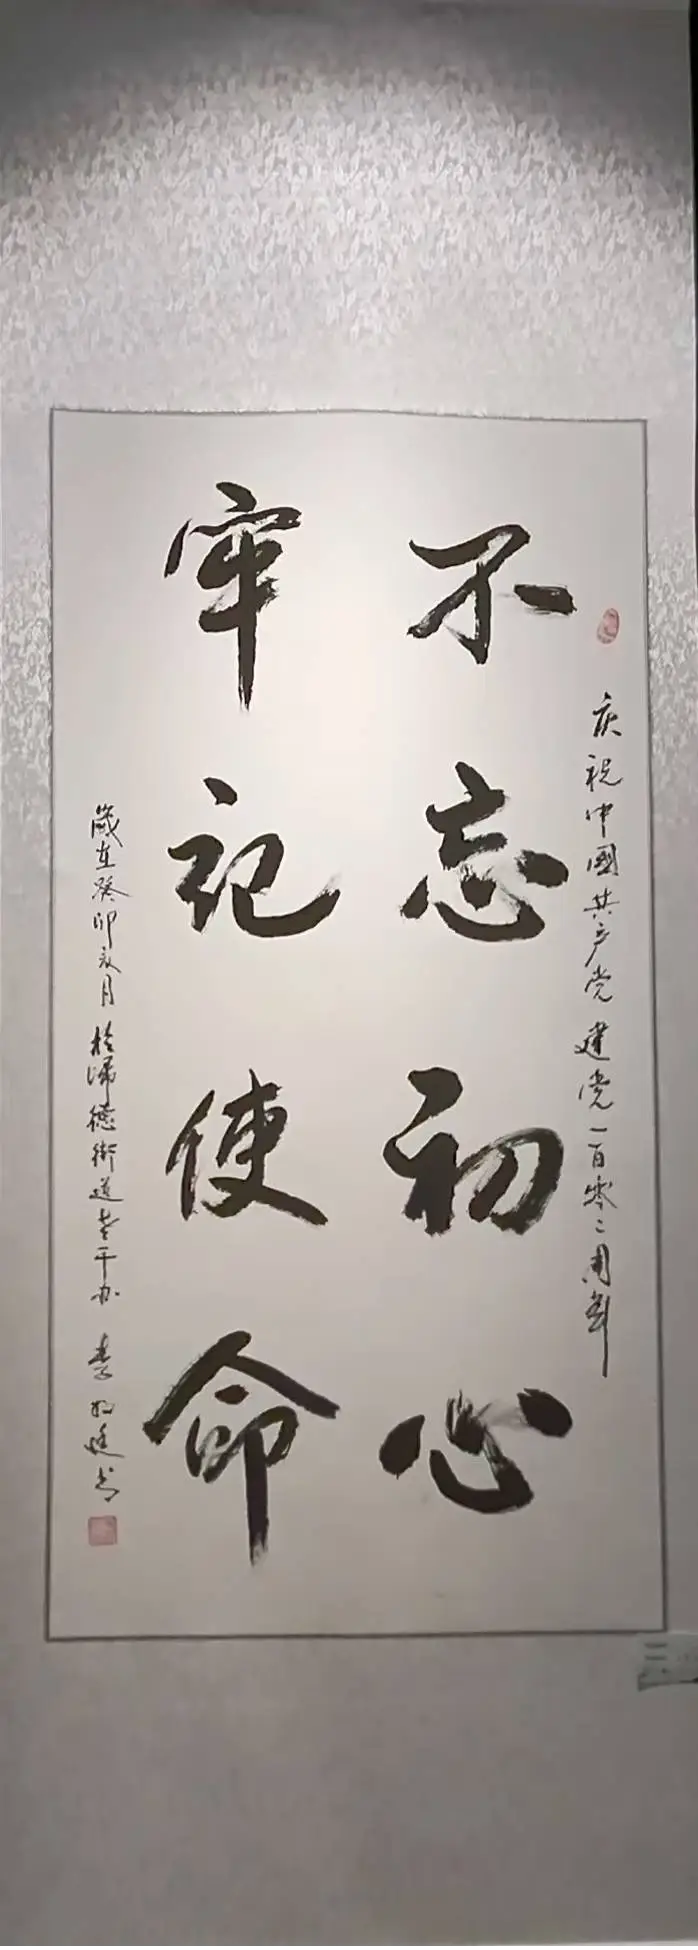 庆祝中国共产党建党一百零二周年
不忘初心
牢记使命
岁在癸卯之月于归德街道老干办 李